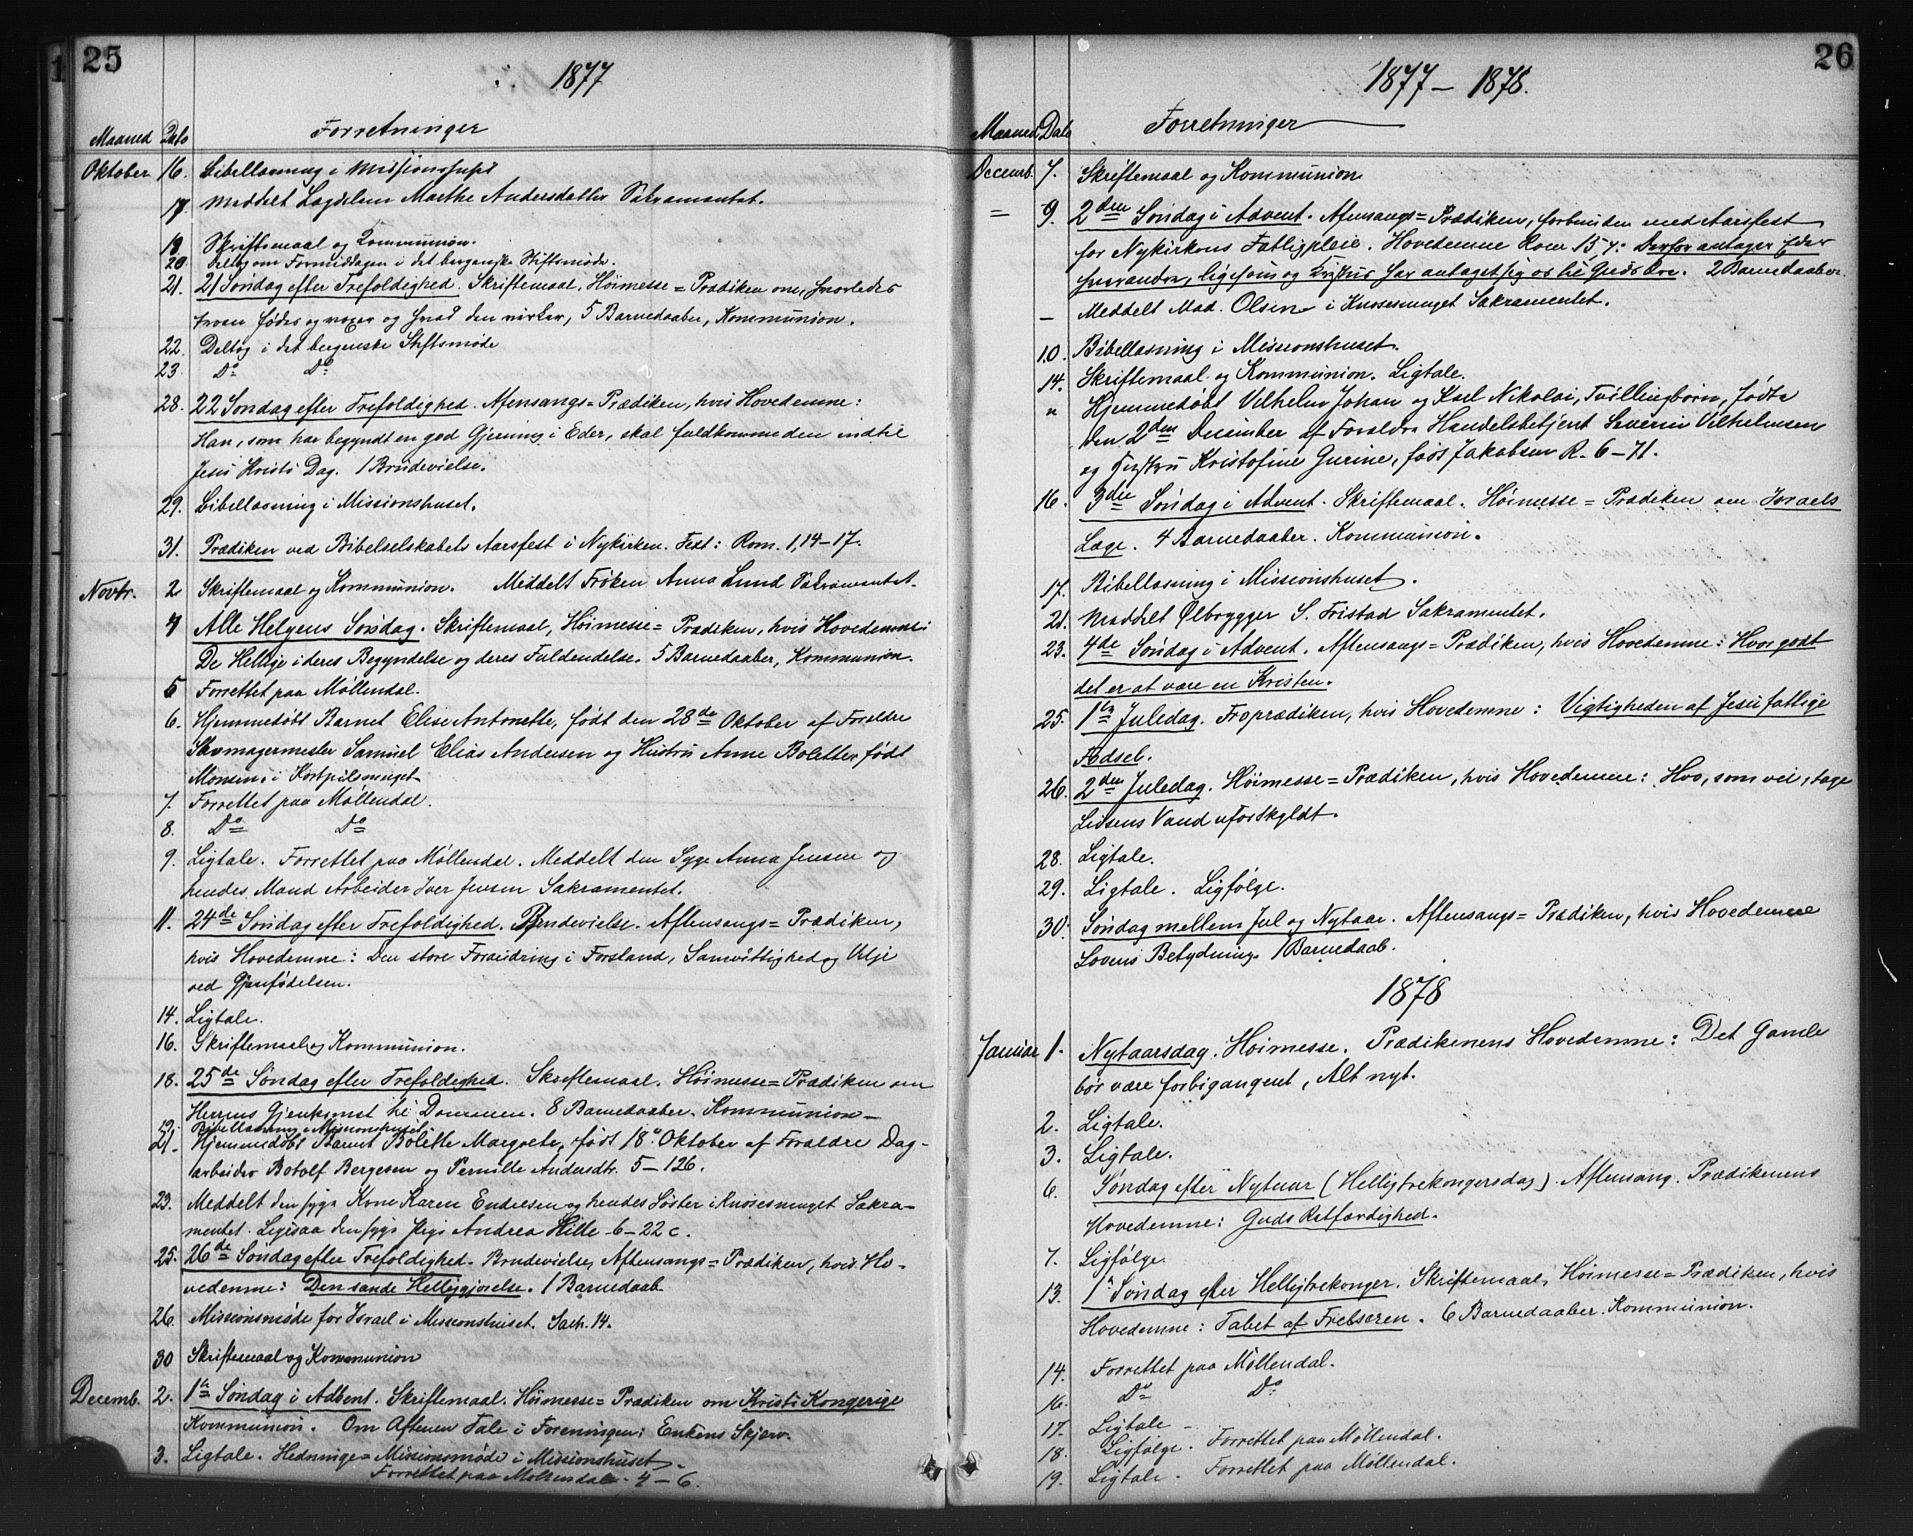 25
1877
Maaned Dato Forretninger
Oktober 16. Bibellæsning i Missionshuset
17. Meddelt Lagdelem Marthe Andersdatter Sakramentet.
19 Skriftemaal og Kommunion.
20 Deltog om Formiddagen i det bergenske Stiftsmøde.
21. 21 Søndag efter Trefoldighed. Skriftemaal. Høimesse=Prædiken om, hvorledes
troen fødes og voxer og hvad den virker, 5 Barnedaaber, Kommunion.
22. Deltog i det bergenske Stiftsmøde
23. Do Do
28. 22 Søndag efter Trefoldighed. Aftensangs=Prædiken, hvis Hovedemne:
Han, som har begyndt en god Gjerning i Eder, skal fuldkomme den indtil
Jesu Kristi Dag. 1 Brudevielse.
29. Bibellæsning i Missionshuset.
31. Prædiken ved Bibelselskabets Aarsfest i Nykirken. Text: Rom. 1,14-17.
Novbr. 2 Skriftemaal og Kommunion. Meddelt Frøken Anna Lund Sakramentet.
4 Alle Helgens Søndag. Skriftemaal, Høimesse=Prædiken, hvis Hovedemne:
De Hellige i deres Begyndelse og deres Fuldendelse. 5 Barnedaaber, Kommunion.
5 Forrettet paa Møllendal.
6. Hjemmedøbt Barnet Elise Antonette, født den 28de Oktober af Forældre
Skomagermester Samuel Elias Andersen og Hustru Anne Bolette, født
Monsen, i Kortpilsmuget
7. Forrettet paa Møllendal.
8. Do Do
9. Ligtale. Forrettet paa Møllendal. Meddelt den Syge Anna Jensen og
hendes Mand Arbeider Iver Jensen Sakramentet.
11. 24de Søndag efter Trefoldighed. Brudevielse. Aftensangs=Prædiken,
hvis Hovedemne: Den store Forandring i Forstand, Samvittighed og Vilje
ved Gjenfødelsen.
14. Ligtale.
16. Skriftemaal og Kommunion.
18. 25de Søndag efter Trefoldighed. Skriftemaal. Høimesse=Prædiken om
Herrens Gjenkomst til Dommen. 8 Barnedaaber. Kommunion-
19. Bibellæsning i Missionshuset.
21. Hjemmedøbt Barnet Bolette Margrete, født 18. Oktober af Forældre Dag-
arbeider Botolf Bergesen og Pernille Andersdtr. 5-126.
23. Meddelt den syge Kone Karen Endresen og hendes Søster i Knøsesmuget Sakra-
mentet. Ligesaa den syge Pige Andrea Hille 6-22c.
25. 26de Søndag efter Trefoldighed. Brudevielse, Aftensangs=Prædiken, hvis Ho-
vedemne: Den sande Helliggjørelse. 1 Barnedaab
26. Missionsmøde for Israel i Missionshuset. Sach. 14.
30 Skriftemaal og Kommunion
Decemb. 2. 1ste Søndag i Advent. Skriftemaal. Høimesse=Prædiken om Kristi Kongerige
Kommunion. Om Aftenen Tale i Foreningen: Enkens Skjærv.
3. Ligtale. Hedninge=Missionsmøde i Missionshuset.
Forrettet paa Møllendal. 4-6.
26
1877-1878.
Maaned Dato Forretninger
Decemb. 7. Skriftemaal og Kommunion
= 9. 2den Søndag i Advent. Aftensangs=Prædiken, forbunden med Aarsfest
for Nykirkens Fattigpleie. Hovedemne Rom 15,7: Derfor antager Eder
hverandre, ligesom og Kristus har antaget sig os til Guds Ære. 2 Barnedaaber.
- Meddelt Mad. Olsen i Knøsesmuget Sakramentet.
10. Bibellæsning i Missionshuset.
14. Skriftemaal og Kommunion. Ligtale.
" Hjemmedøbt Vilhelm Johan og Karl Nikolai, Tvillingbørn, fødte
den 2den December af Forældre Handelsbetjent Severin Vilhelmsen
og Hustru Kristofine Gurine, født Jakobsen R. 6-71.
16. 3die Søndag i Advent. Skriftemaal. Høimesse=Prædiken om Israels
Læge. 4 Barnedaaber. Kommunion.
17. Bibellæsning i Missionshuset.
21. Meddelt Ølbrygger S. Fristad Sakramentet.
23. 4de Søndag i Advent. Aftensangs=Prædiken, hvis Hovedemne: Hvor godt
det er at være en Kristen.
25. 1ste Juledag. Froprædiken, hvis Hovedemne: Vigtigheden af Jesu fattige
Fødsel.
26. 2den Juledag. Høimesse=Prædiken, hvis Hovedemne: Hvo, som vil, tage
Livsens Vand uforskyldt.
28. Ligtale.
29. Ligtale. Ligfølge.
30. Søndag mellem Jul og Nytaar. Aftensangs=Prædiken, hvis Hovedemne
Lovens Betydning. 1 Barnedaab.
1878
Januar 1. Nytaarsdag. Høimesse. Prædikenens Hovedemne: Det Gamle
bør være forbigangent, Alt nyt.
2. Ligtale.
3. Ligtale.
6. Søndag efter Nytaar (Helligtrekongersdag). Aftensang. Prædikenens
Hovedemne: Guds Retfærdighed.
7. Ligfølge
13. 1ste Søndag efter Helligtrekonger. Skriftemaal, Høimesse=Prædiken, hvis
Hovedemne: Tabet af Frelseren. 6 Barnedaaber. Kommunion.
14. Forrettet paa Møllendal.
16. Do Do
17. Ligtale -
18. Ligfølge. Forrettet paa Møllendal.
19. Ligtale. Forrettet paa Møllendal.